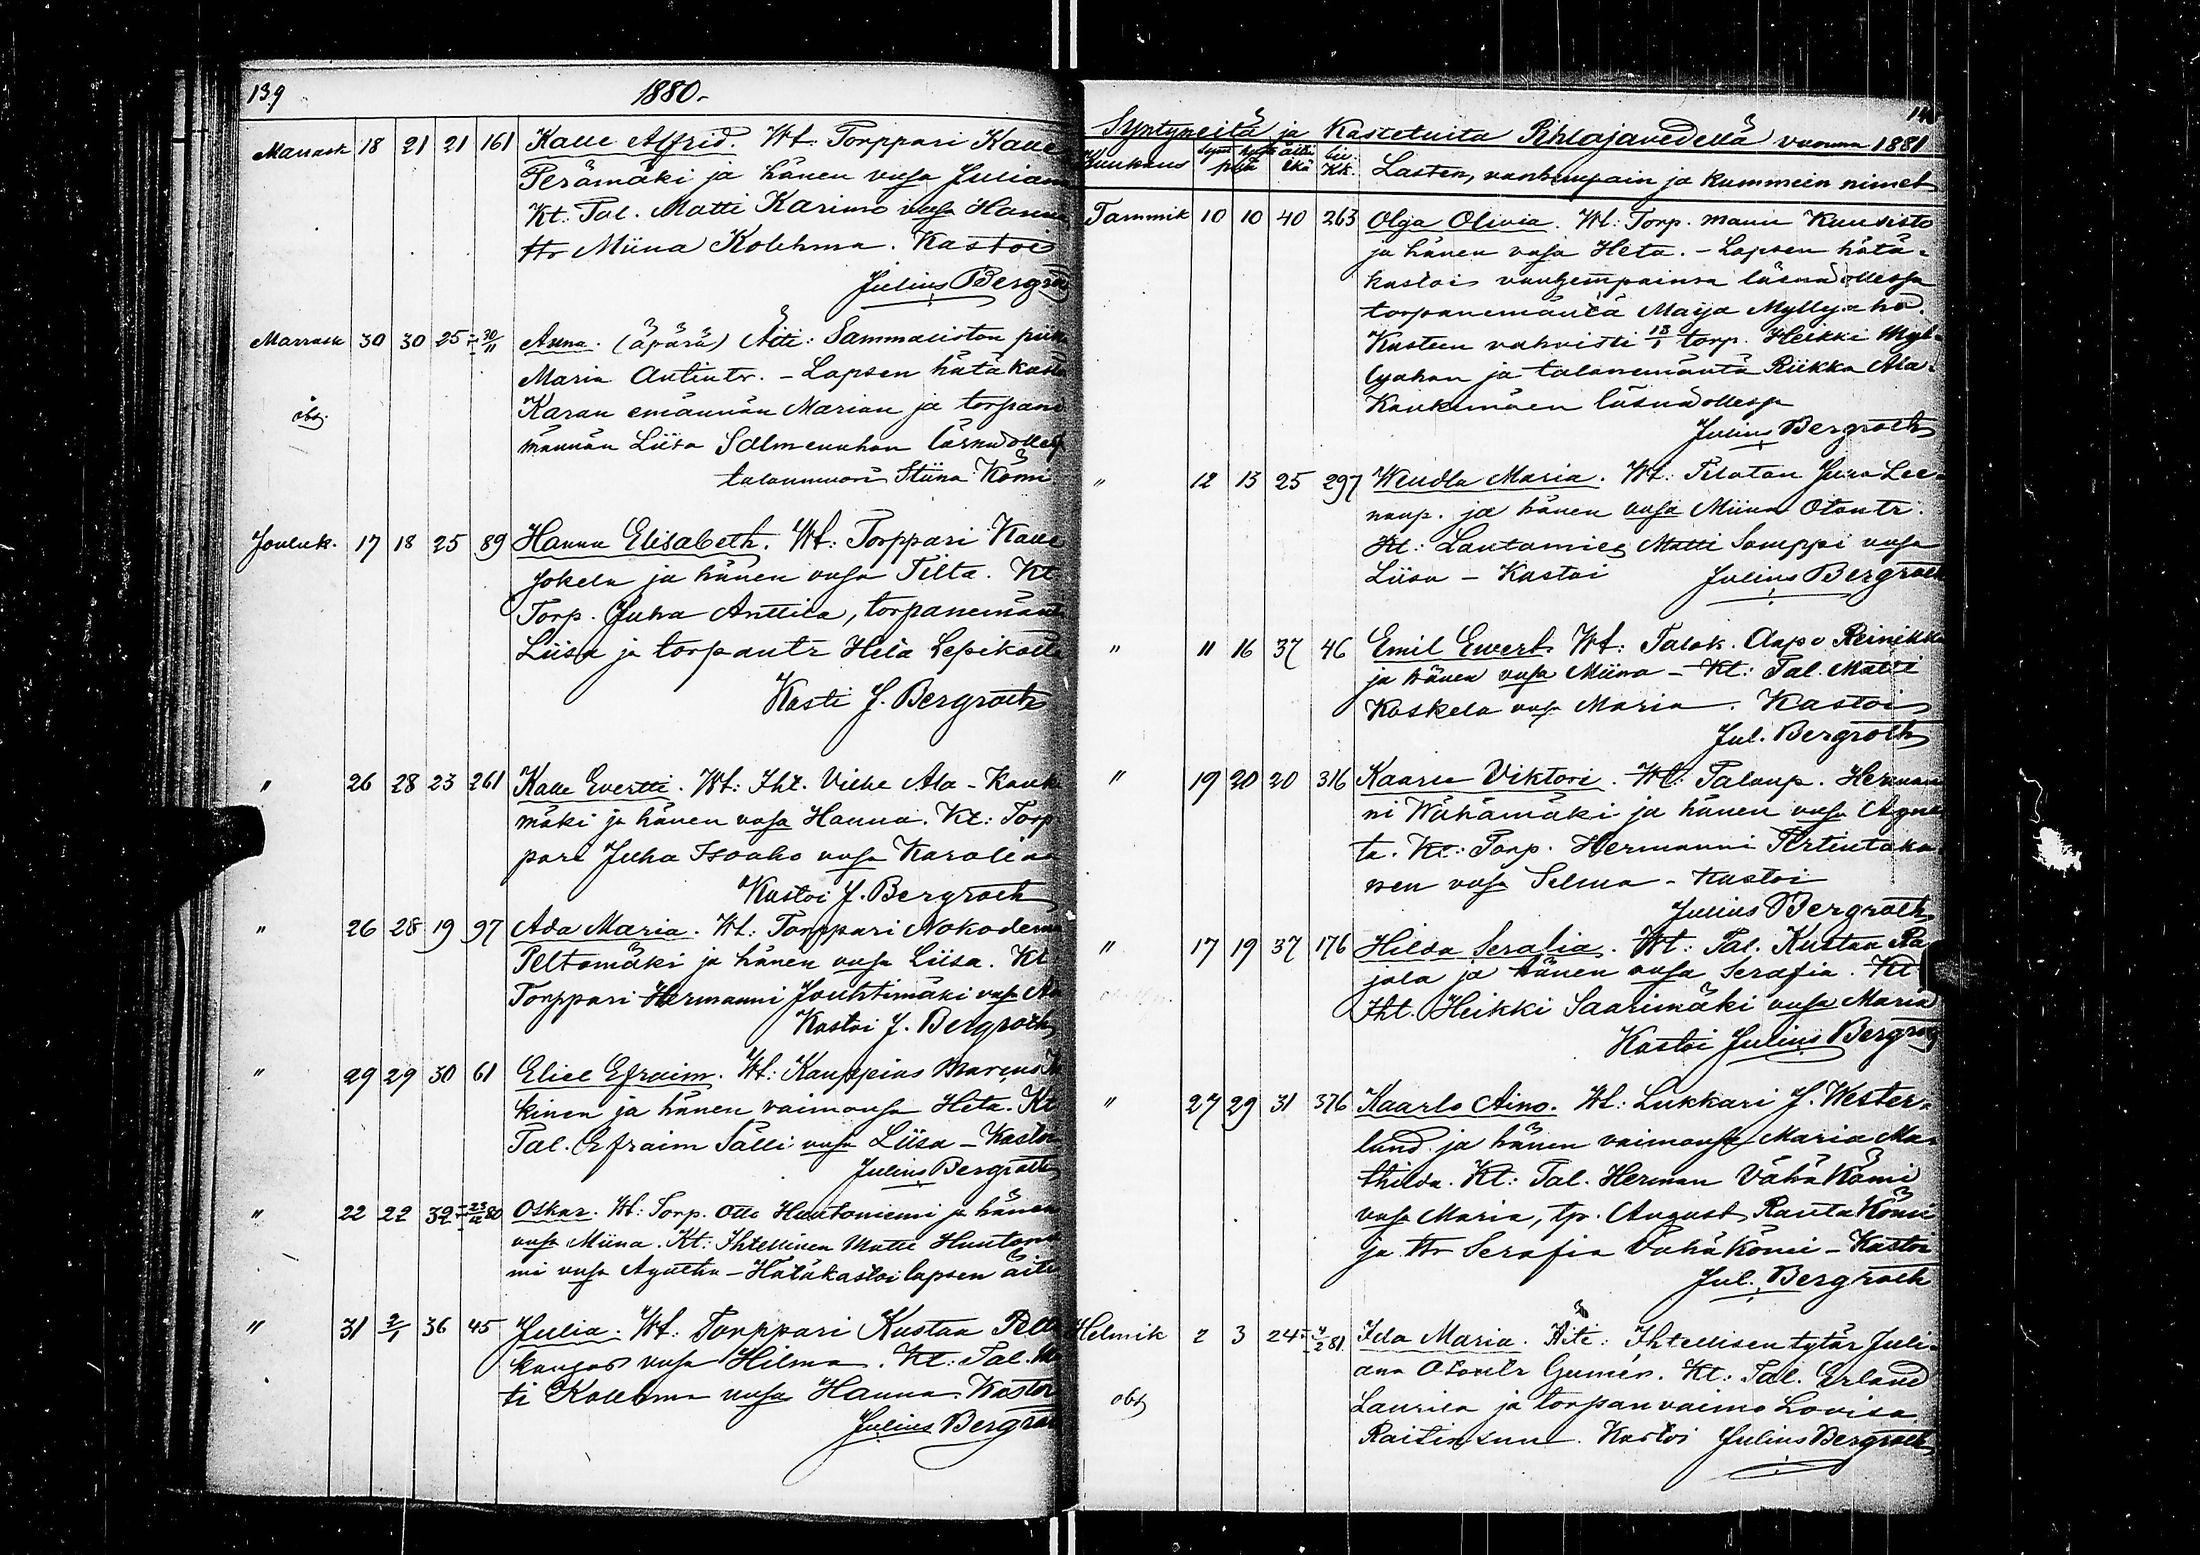 139
1880.
Marrask 18 21 21 161 Kalle Alfrid. Wt: Torppari Kalle
Perämäki ja hänen vsa Juliana
Kt: Tal. Matti Karimo vsa Hanna
ttr Miina Kolehma. Kastoi
Julius Bergro
Marrask 30 30 25 30/11 Anna. (äpärä) Äiti: Sammaliston piika
Maria Antintr. - Lapsen hätäkasto
obs. Karan emännän Marian ja torpane
männän Liisa Salmenahon läsnäollessa
talonmuori Stiina Kömi
Jouluk. 17 18 25 89 Hanna Elisabeth. Wt: Torppari Kalle
Jokela ja hänen vsa Tilta. Kt
Torp. Juha Anttila, torpanemäntä
Liisa ja torpantr Heta Lepikolta
Kasti J. Bergroth
" 26 28 23 261 Kalle Evertti. Wt: Iht. Vilhe Ala-Kauk
mäki ja hänen vsa Hanna. Kt: Torp
pari Juha Isoaho vsa Karolina
Kastoi J. Bergroth
" 26 28 19 97 Ada Maria. Wt: Torppari Nokodema
Peltomäki ja hänen vsa Liisa. Kt
Torppari Hermanni Jouhtimäki vsa
Kastoi J. Bergroth
" 29 29 30 61 Eliel Efraim. Wt: Kauppias Marcus
kinen ja hänen vaimonsa Heta. Kt
Tal. Efraim Sälli vsa Liisa - Kastoi
Julius Bergroth
" 22 22 32 23/12 80 Oskar. Wt: Torp. Otto Huutoniemi ja hänen
vsa Miina. Kt: Ihtellinen Matti Huuton
mi vsa Agatha - Hätäkastoi lapsen äiti
" 31 2/1 36 45 Julia. Wt: Torppari Kustaa Pelto
kangas vsa Hilma. Kt: Tal. Ma
ti Kolehma vsa Hanna. Kastoi
Julius Bergroth
140
Syntyneitä ja Kastetuita Pihlajavedellä vuonna 1881
Kuukaus synt kast äitin Siv.
pvä ikä Kk. Lasten, vanhempain ja kummein nimet
Tammik 10 10 40 263 Olga Olivia. Wt: Torp. Manu Kuusisto
ja hänen vsa Heta. - Lapsen hätä-
kastoi vanhempainsa läsnäollessa
torpanemäntä Maija Myllyaho.
Kasteen vahvisti 18/1 torp. Heikki Myl-
lyahon ja talonemäntä Riikka Ala-
Kaukimäen läsnäollessa
Julius Bergroth
" 12 13 25 297 Wendla Maria. Wt: Tilatan Juha Lee-
nanp. ja hänen vsa Miina Otontr.
Kt: Lautamies Matti Samppi vsa
Liisa - Kastoi Julius Bergroth
" 11 16 37 46 Emil Ewert. Wt: Talok. Aapo Reinikka
ja hänen vsa Miina - Kt: Tal. Matti
Koskela vsa Maria. Kastoi
Jul. Bergroth
" 19 20 20 316 Kaarle Viktori. Wt: Talonp. Herman
ni Wähämäki ja hänen vsa Agne
ta. Kt: Torp. Hermanni Pertintaka
nen vsa Selma - Kastoi
Julius Bergroth
" 17 19 37 176 Hilda Serafia. Wt: Tal. Kustaa Ra
jala ja hänen vsa Serafia. Kt
Iht. Heikki Saarimäki vsa Maria
Kastoi Julius Bergroth
" 27 29 31 376 Kaarlo Aino. Wt: Lukkari J. Wester-
lund ja hänen vaimonsa Maria Ma-
thilda. Kt: Tal. Herman Vähä Kömi
vsa Maria, tp. August Ranta Kömi
ja ttr Serafia Vähä Kömi - Kastoi
Jul. Bergroth
Helmik 2 3 24 4/2 81. Ida Maria. Äiti: Ihtellisen tytär Juli-
ana Otontr Gumér. Kt: Tal. Erland
obs Laurila ja torpanvaimo Lovisa
Raitinsuu. Kastoi Julius Bergroth